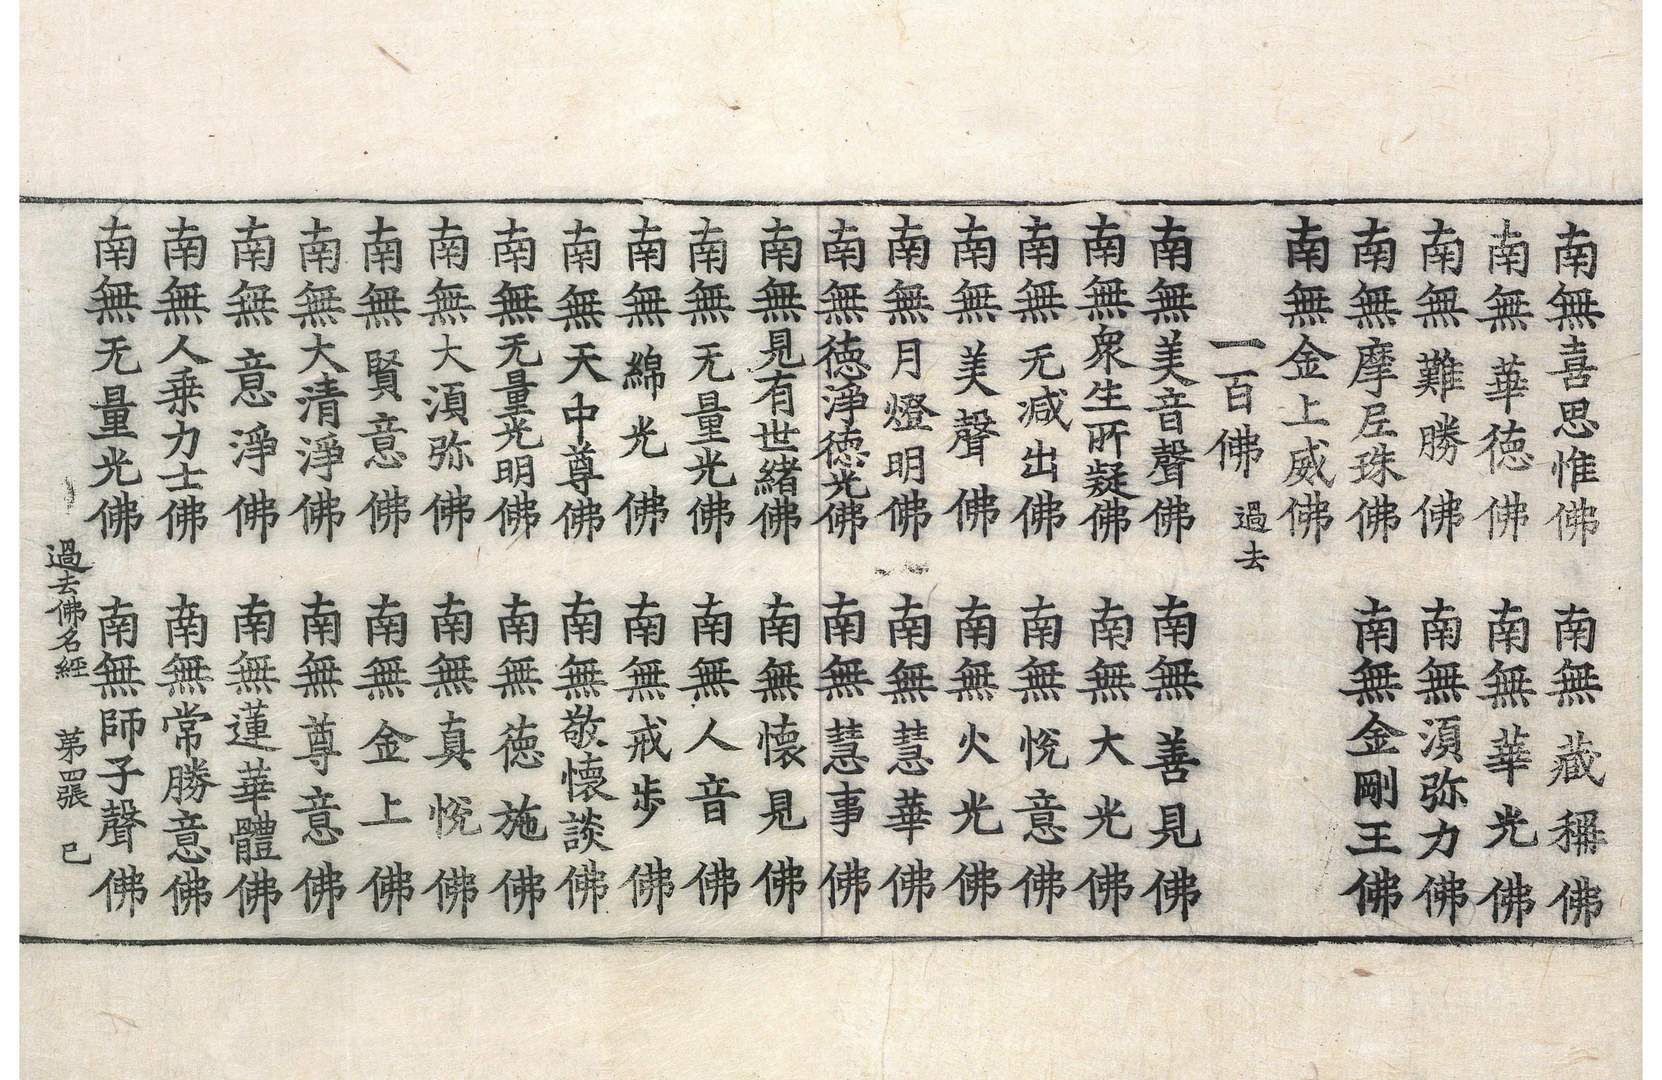 南無喜思惟佛　南無藏稱佛
南無華德佛　南無華光佛
南無難勝佛　南無須弥力佛
南無摩尼珠佛　南無金剛王佛
南無金上威佛
一百佛　過去
南無美音聲佛　南無善見佛
南無衆生所疑佛　南無大光佛
南無无減出佛　南無悅意佛
南無美聲佛　南無火光佛
南無月燈明佛　南無慧華佛
南無德淨德光佛　南無慧事佛
南無見有世緒佛　南無懷見佛
南無无量光佛　南無人音佛
南無綿光佛　南無戒步佛
南無天中尊佛　南無敬懷談佛
南無无量光明佛　南無德施佛
南無大須弥佛　南無真悅佛
南無賢意佛　南無金上佛
南無大清淨佛　南無尊意佛
南無意淨佛　南無蓮華體佛
南無人乗力士佛　南無常勝意佛
南無无量光佛　南無師子聲佛
過去佛名經　苐四張　已